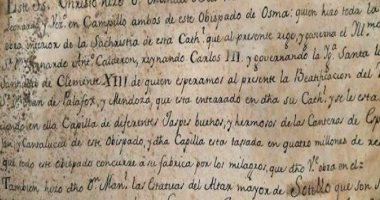 Este Sto. Christo hizo Dn.
Leonardo y Srs. en Campillo ambos de este Obispado de Osma: quien hizo toda la
obra interior de la Sachristia de esta Cathl. que al presente rige, y govierna el Ill.mo
Sr. Dn. Bernardo Anto. Calderon, reynando Carlos III. y governando la Yga. Santa la
Santidad de Clemente XIII de quien esperamos al presente la Beatificacion del
Sr. Dn. Juan de Palafox, y Mendoza, que esta enterrado en dha su Cathl. y se le esta
ciendo en ella Capilla de diferentes Jaspes buenos, y hermosos de las Canteras de
y Cantalucel de este Obispado, y dha Capilla esta tasada en quatro millones de
que todo este Obispado concurre a su fabrica por los milagros, que dho Ve. obra en el:
Tambien hizo dho Dn. Manl. las Estatuas del Altar mayor de Sotillo que son